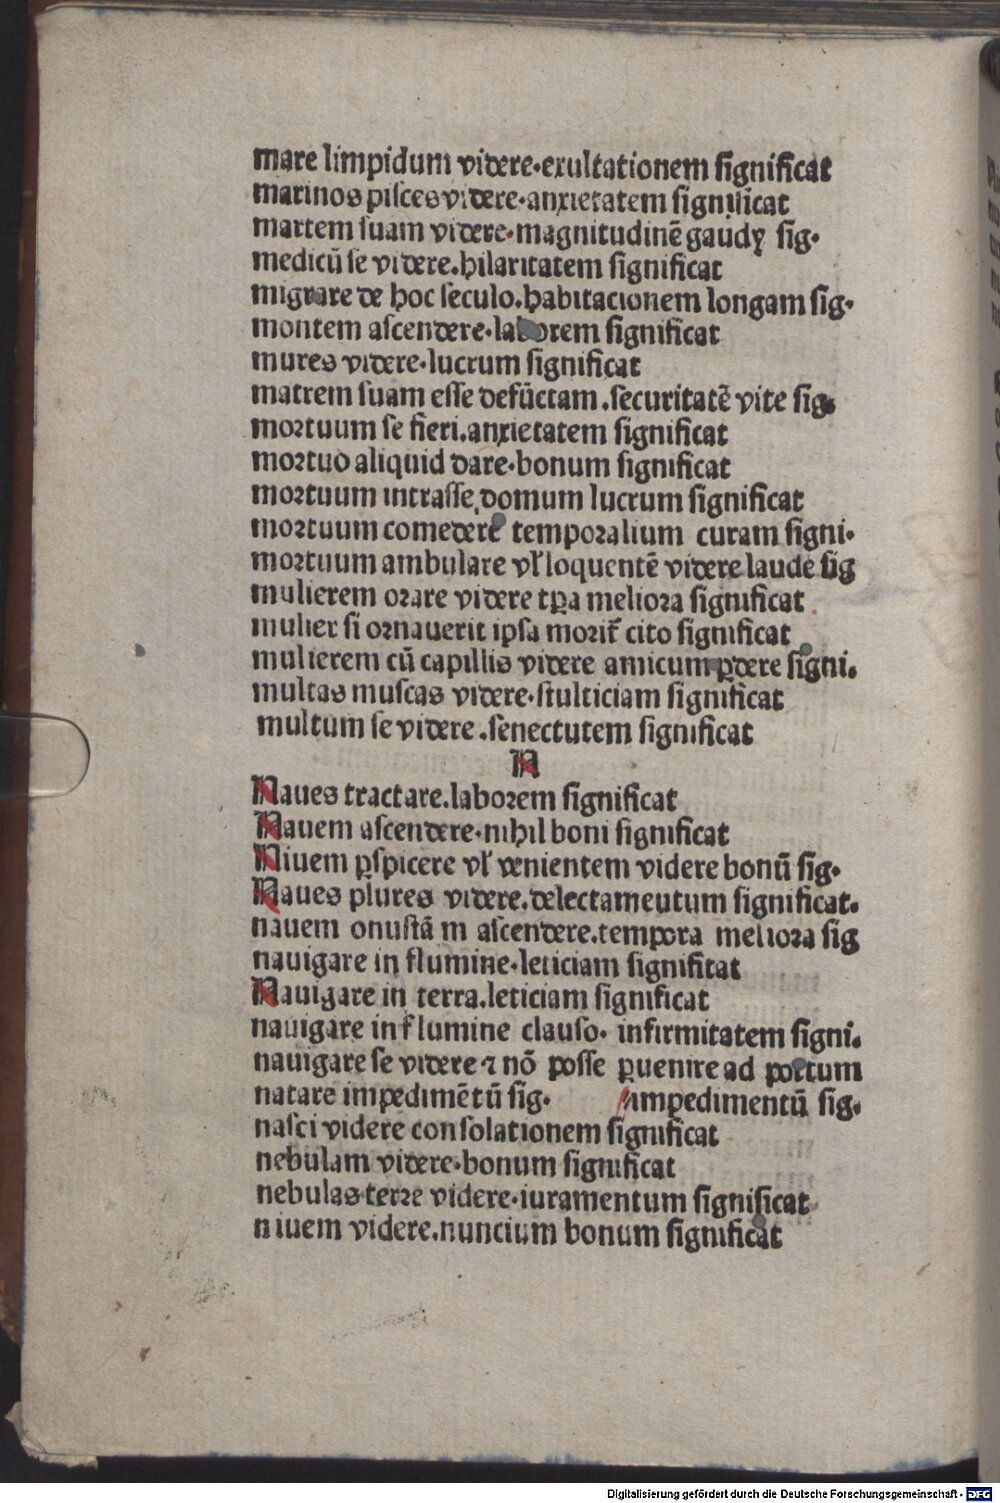 mare limpidum videre·exultationem significat
marinos pisces videre·anxietatem significat
martem suam videre·magnitudinē gaudꝫ sig·
medicū se videre.hilaritatem significat
migrare de hoc seculo.habitacionem longam sig·
montem ascendere·laborem significat
mures videre·lucrum significat
matrem suam esse defūctam .securitatē vite sig·
mortuum se fieri.anxietatem significat
mortuo aliquid dare·bonum significat
mortuum intrasse domum lucrum significat
mortuum comedere temporalium curam signi·
mortuum ambulare vł loquentē videre laudē sig
mulierem orare videre tꝑa meliora significat
mulier si ornauerit ipsa morit᷑ cito significat
mulierem cū capillis videre amicum ꝑdere signi.
multas muscas videre·stulticiam significat
multum se videre .senectutem significat
N
Naues tractare.laborem significat
Nauem ascendere·nihil boni significat
Niuem ꝑspicere vł venientem videre bonū sig·
Naues plures videre.delectameutum significat.
nauem onustā m ascendere.tempora meliora sig
nauigare in flumine·leticiam signifitat
Nauigare in terra.leticiam significat
nauigare in flumine clauso· infirmitatem signi.
nauigare se videre ⁊ nō posse ꝑuenire ad portum
natare impedimētū sig· impedimentū sig·
nasci videre consolationem significat
nebulam videre·bonum significat
nebulas terre videre·iuramentum significat
niuem videre.nuncium bonum significat
Digitalisierung gefördert durch die Deutsche Forschungsgemeinschaft - DFG